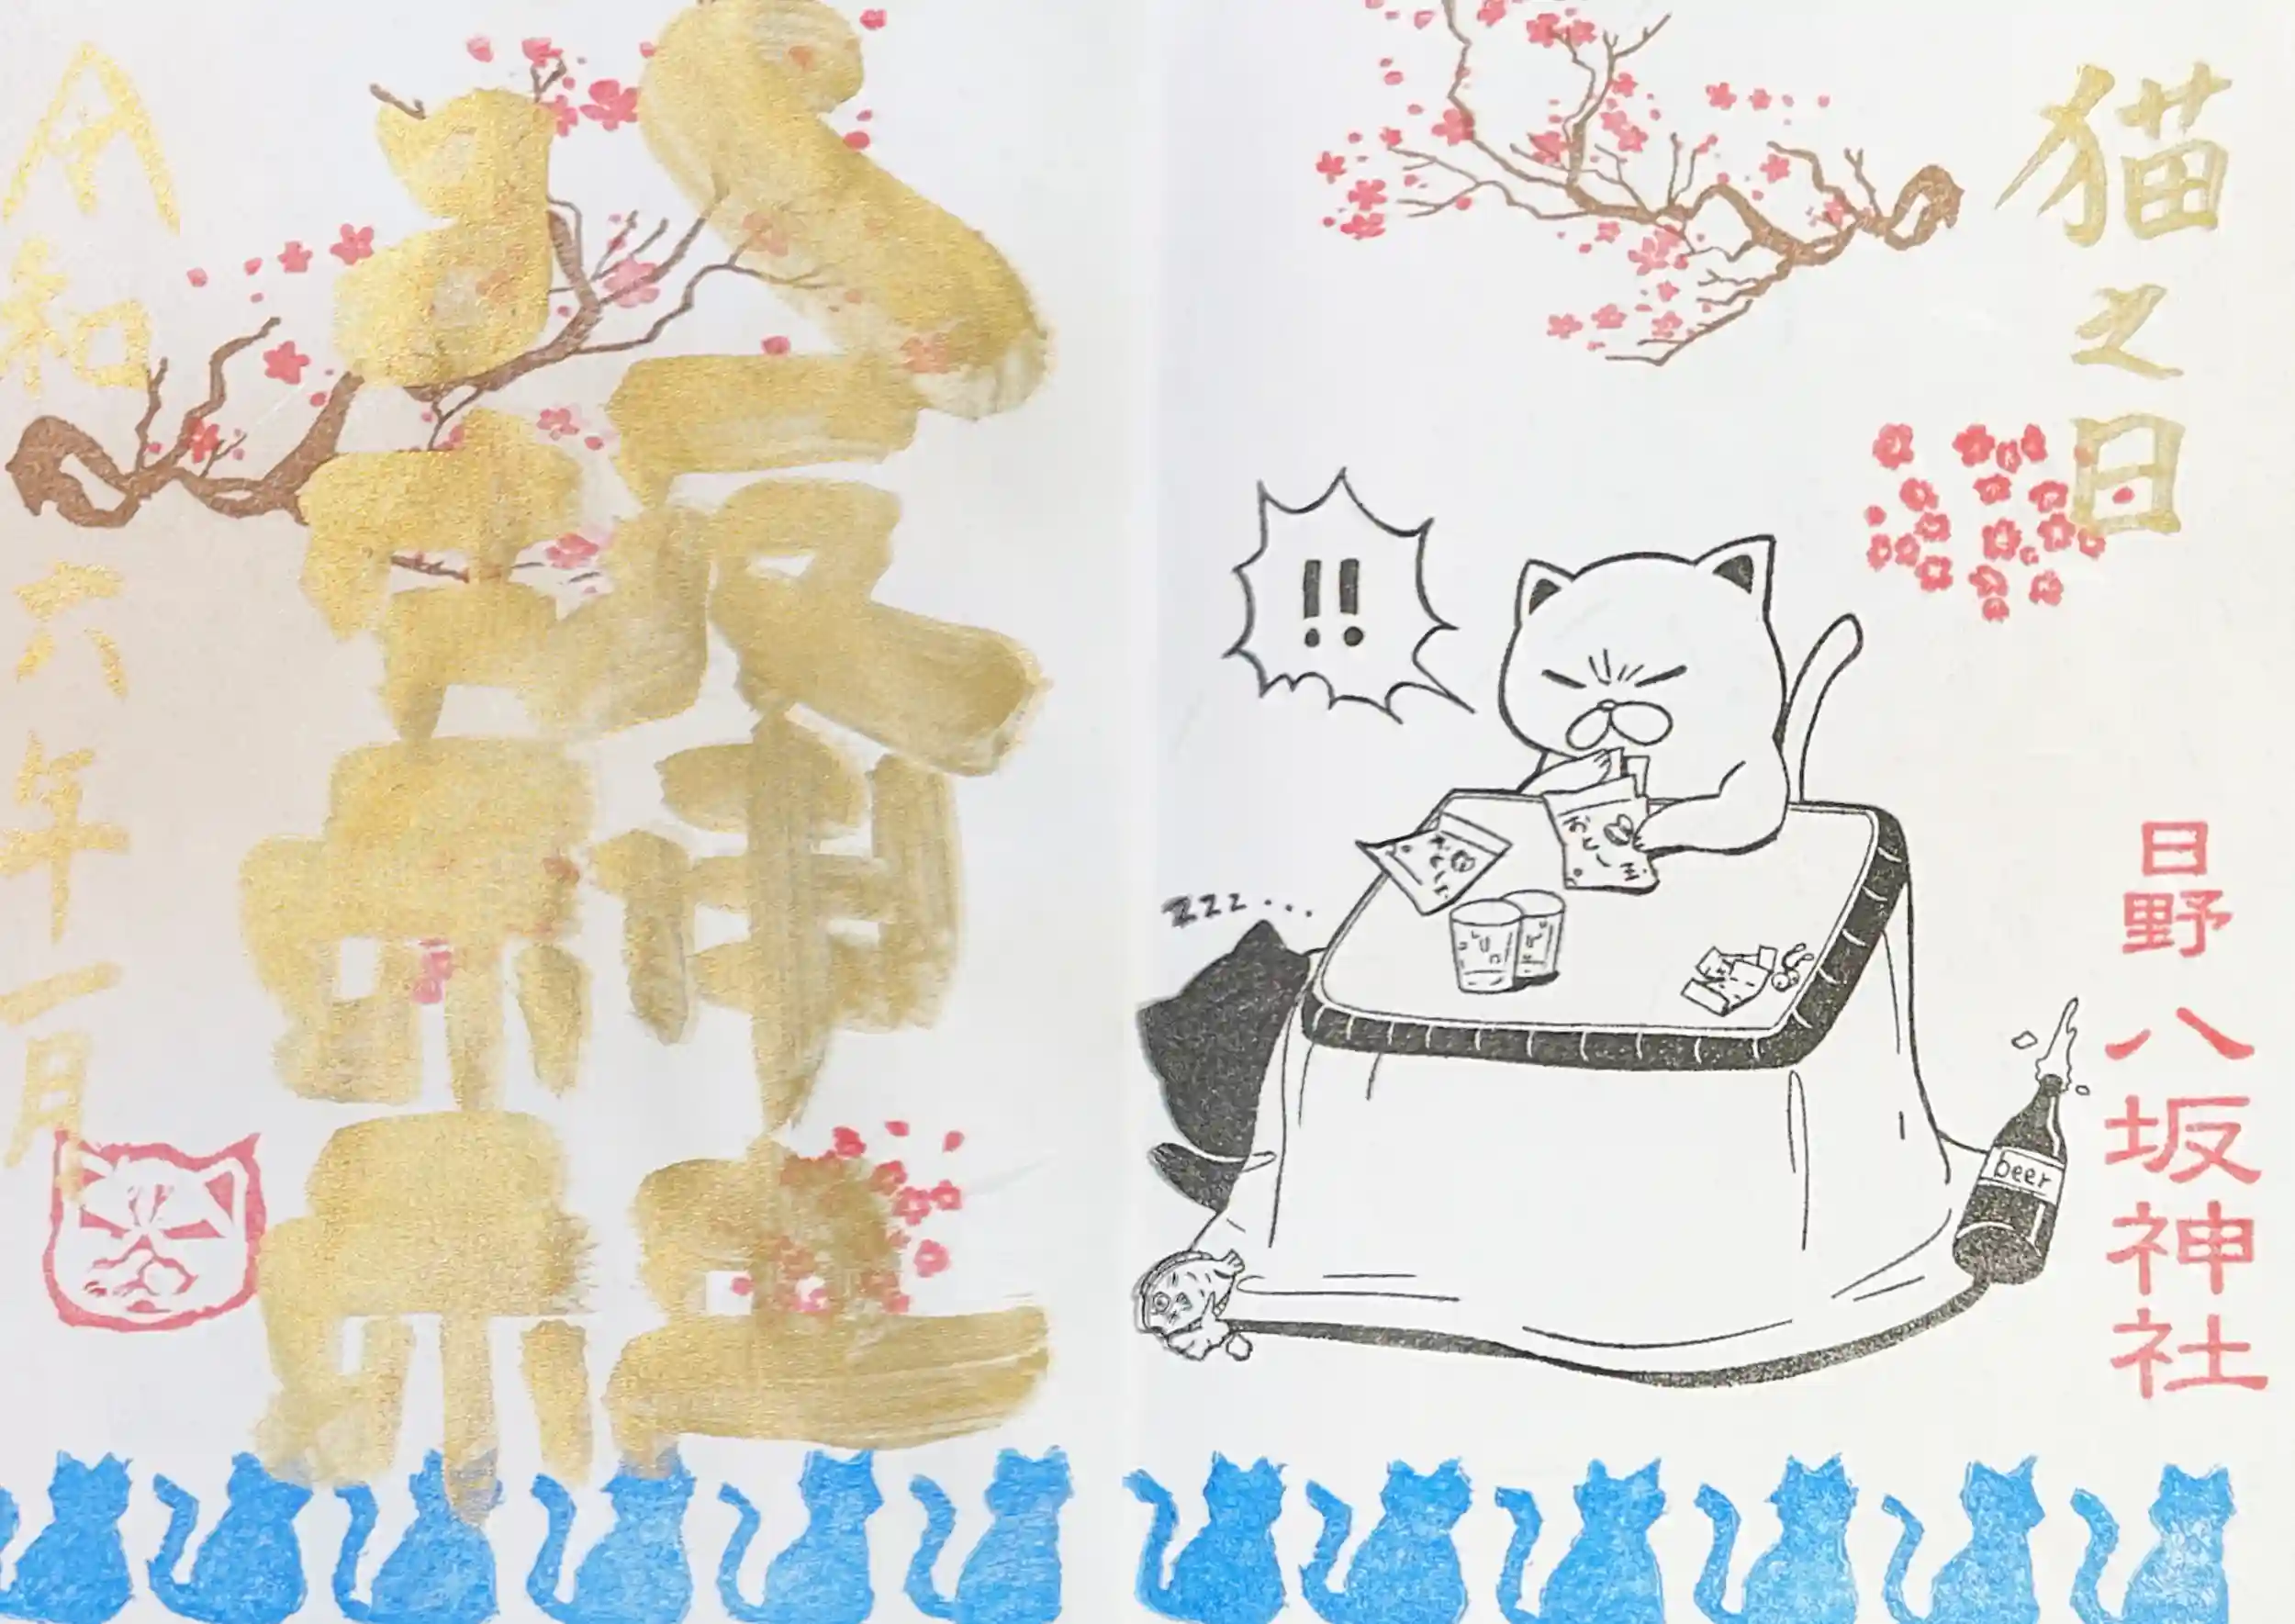 猫之日
日野 八坂神社
!!
おとし玉
zzz...
beer
八坂神社
令和六年一月